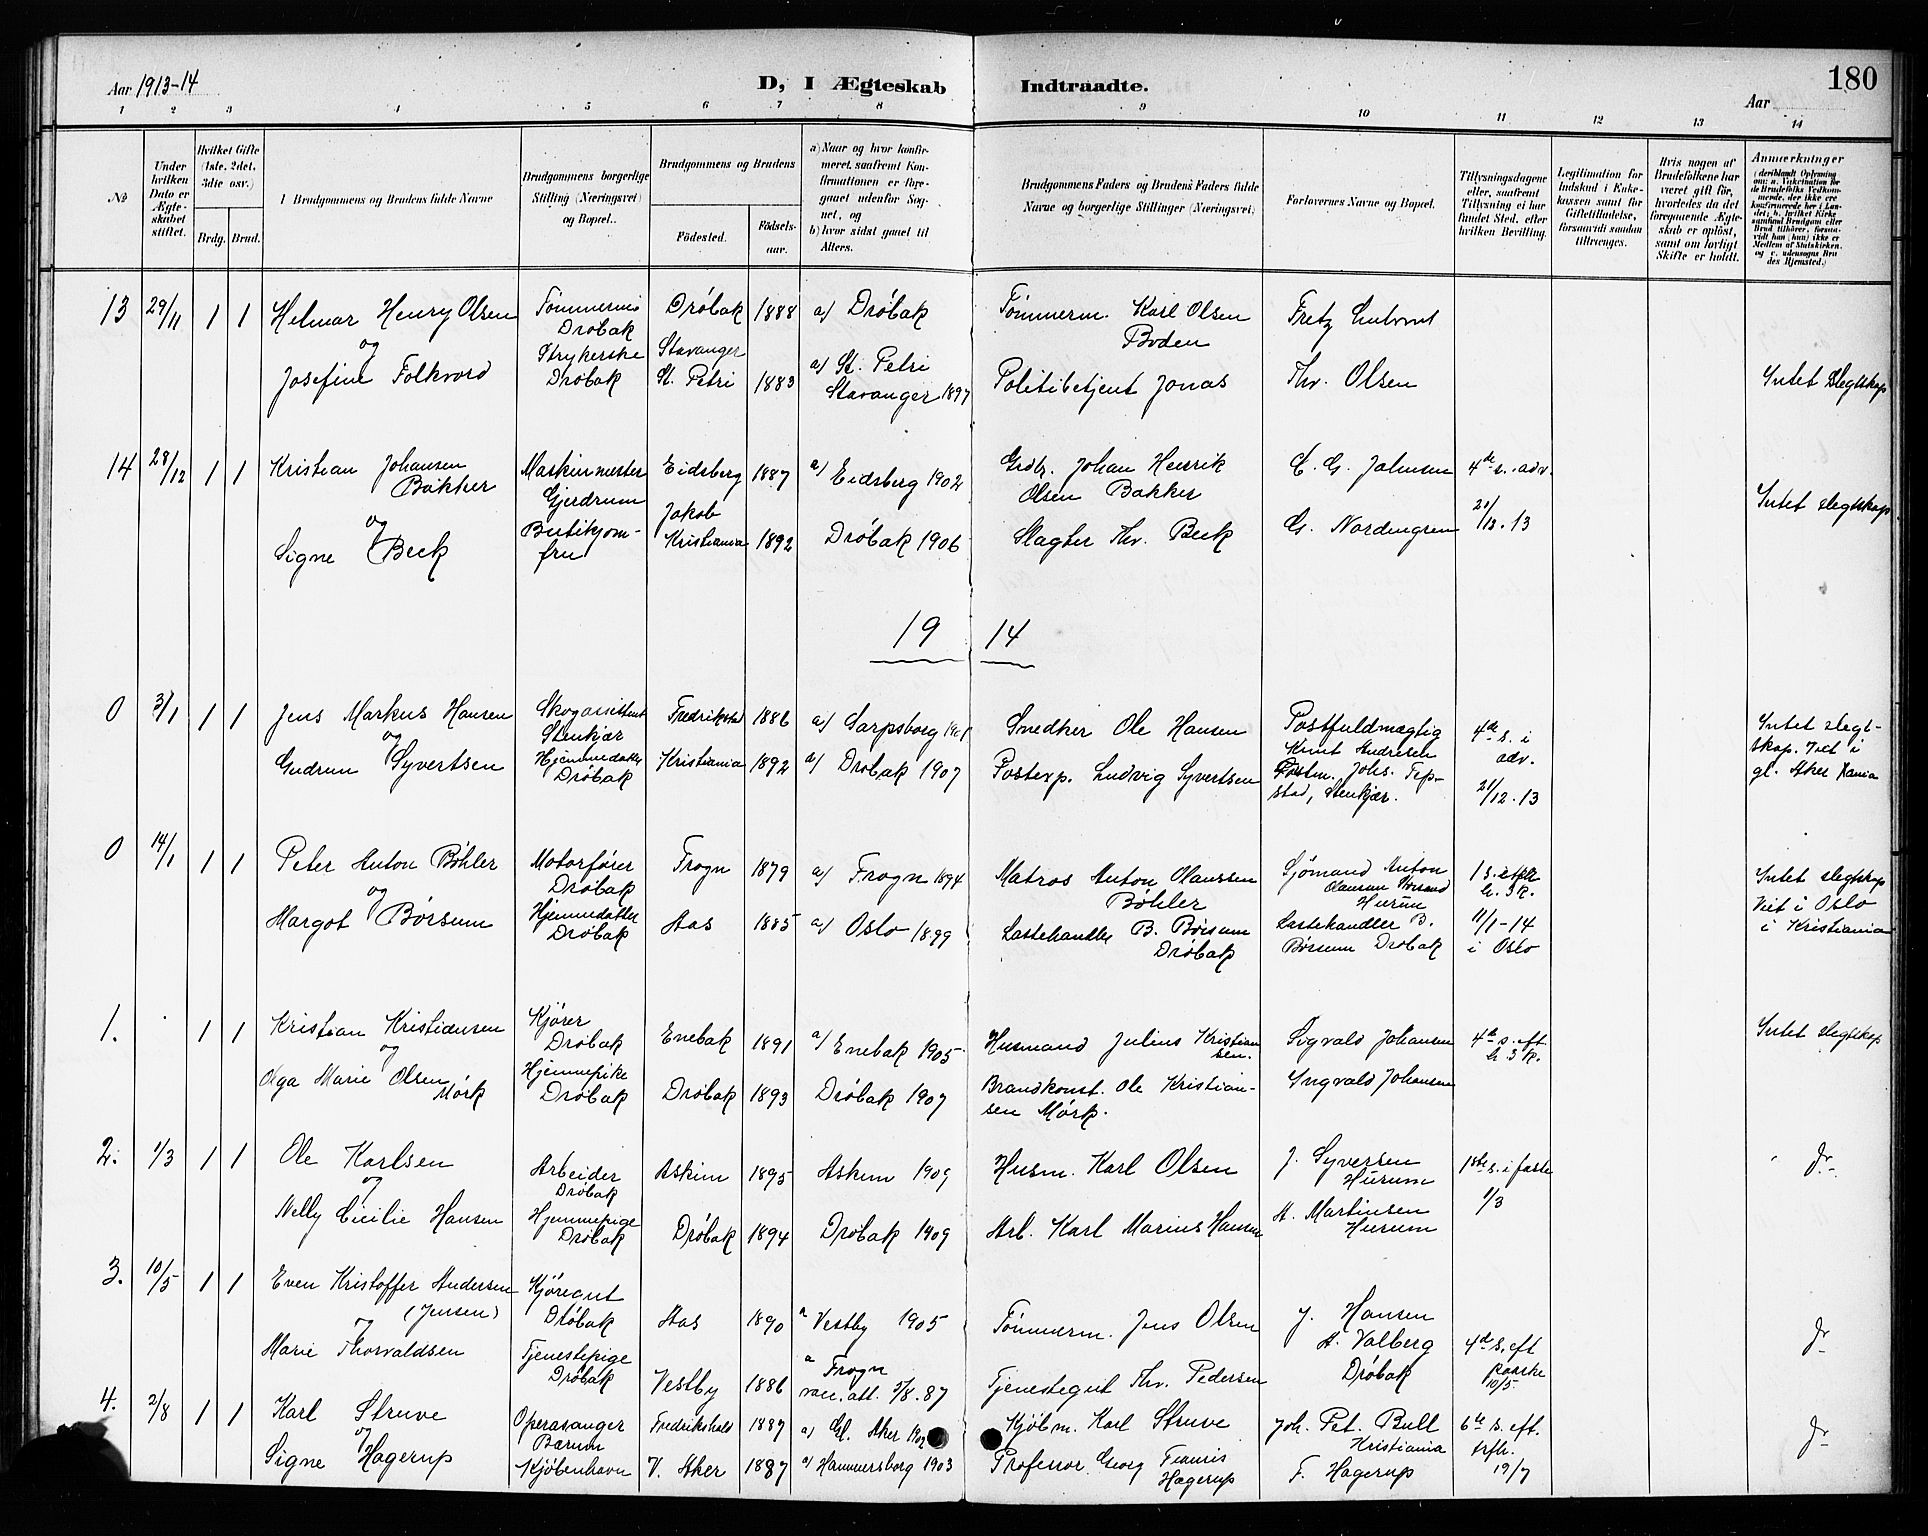 Aar 1913-14
D, I Ægteskab Indtraadte.
Aar
180
1 2 3 4 5 6 7 8 9 10 11 12 13 14
No
Under hvilken Dato er Ægteskabet stiftet.
Hvilket Gifte (1ste, 2det, 3die osv.)
Brdg. Brud.
Brudgommens og Brudens fulde Navne
Brudgommens borgerlige Stilling (Næringsvei) og Bopæl.
Brudgommens og Brudens
Fødested.
Fødselsaar.
a) Naar og hvor konfirmeret, saafremt Konfirmationen er foregaaet udenfor Sognet, og
b) hvor sidst gaaet til Alters.
Brudgommens Faders og Brudens Faders fulde Navne og borgerlige Stillinger (Næringsvei)
Forlovernes Navne og Bopæl.
Tillysningsdagene eller, saafremt Tillysning ei har fundet Sted, efter hvilken Bevilling.
Legitimation for Indskud i Enkekassen samt for Giftetilladelse, forsaavidt saadan tiltrænges.
Hvis nogen af Brudefolkene har været gift før, hvorledes da det foregaaende Ægteskab er opløst, samt om lovligt Skifte er holdt.
Anmerkninger
13 29/11 1 1 Helmar Henry Olsen Drøbak Drøbak 1888 a) Drøbak Tømmerm. Karl Olsen Boden Fretz
og Josefine Folkvord Strykerske Drøbak Stavanger St. Petri 1883 a) St. Petri Stavanger 1897 Politibetjent Jonas Thv. Olsen Intet Slegtskap
14 28/12 1 1 Kristian Johansen Bakker Maskinmester Gjerdrum Eidsberg 1887 a) Eidsberg 1902 Grdbr. Johan Henrik Olsen Bakker C. G. Johnsen 4de s. adv. 21/12. 13 Intet slegtskap
og Signe Beck Butikjomfru Jakob Kristiania 1892 Drøbak 1906 Slagter Thv. Beck G. Nordengren
19 14
0 3/1 1 1 Jens Markus Hansen Skogassistent Stenkjær Fredrikstad 1886 a) Sarpsborg Snedker Ole Hansen Postfuldmægtig Knut Andresen 4de s. i adv. 21/12. 13 Intet slegtskap. i gl. Aker
og Gudrun Syvertsen Hjemmedatter Drøbak Kristiania 1892 a) Drøbak 1907 Postexp. Ludvig Syvertsen Postm. Johs. Stenkjær.
0 14/1 1 1 Peter Anton Bøhler Motorfører Drøbak Frogn 1879 a) Frogn 1894 Matros Anton Olaussen Bøhler Sjømand Anton Olaussen Hurum 1 s. efter h. 3 k. 11/1-14 i Oslo Intet slegtskap Viet i Oslo i Kristiania
og Margot Børsum Hjemmedatter Drøbak Aas 1885 a) Oslo 1899 Lastehandler B. Børsum Drøbak Lastehandler B. Børsum Drøbak
1. 1 1 Kristian Kristiansen Kjører Drøbak Enebak 1891 a) Enebak 1905 Husmand Julius Kristiansen. Sigvald Johansen 4de s. eft. h. 3 k. Intet slegtskap
og Olga Marie Olsen Mørk Hjemmepike Drøbak Drøbak 1893 Drøbak 1907 Brandkonst. Ole Kristiansen Mørk. Yngvald Johansen
2. 1/3 1 1 Ole Karlsen Arbeider Drøbak Askim 1895 Askim 1909 Husm. Karl Olsen J. Syversen Hurum 1ste s. i faste 1/3 Do
og Nelly Cecilie Hansen Hjemmepige Drøbak Drøbak 1894 Drøbak 1909 Arb. Karl Marius Hansen A. Martinsen Hurum
3. 10/5 1 1 Even Kristoffer Andersen (Jensen) Kjøregut Drøbak Aas 1890 a Vestby 1905 Tømmerm. Jens Olsen J. Hansen 4de s. eft paaske 10/5. Do
og Marie Thorvaldsen Tjenestepige Drøbak Vestby 1886 a Frogn vac. att. 5/8. 87 Tjenestegut Thv. Pedersen A. Valberg Drøbak
4. 2/8 1 1 Karl Struve Operasanger Bærum Fredrikshald 1887 a) Gl. Aker 1902 Kjøbm. Karl Struve Joh. Pet. Bull Kristiania 6te s. eft. trfh. 19/7 Do
og Signe Hagerup Kjøbenhavn V. Aker 1887 a) Hammersborg 1903 Professor Georg Francis Hagerup F. Hagerup